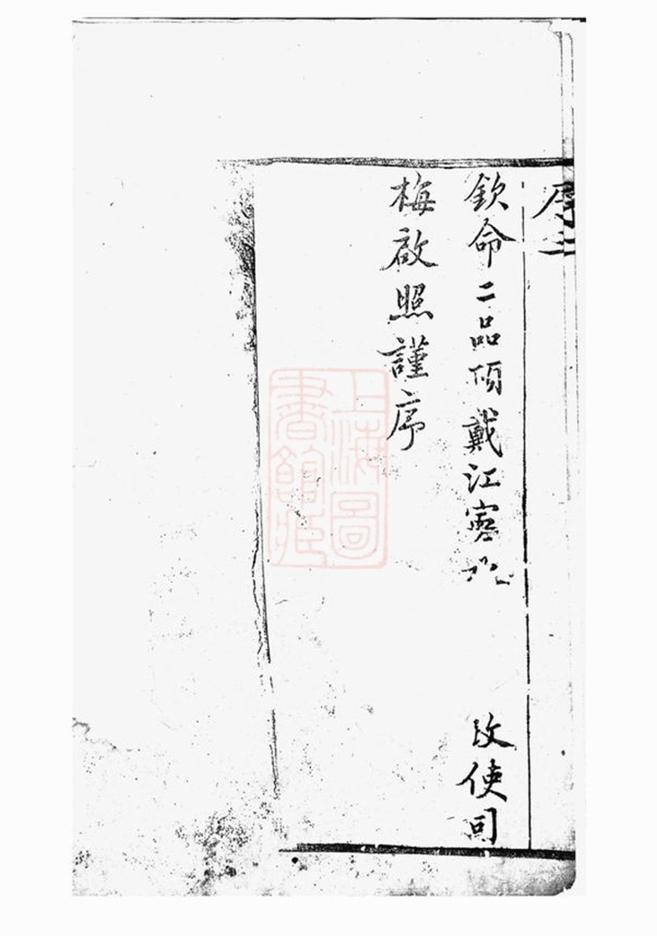 序三
欽命二品頂戴江寧 政使司
梅啟照謹序
上海圖書館藏